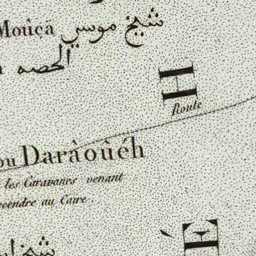 Moûçä شيخ موسي
الحصه
H
Route
ou Darâoûéh
les Caravanes venant
au Caire.
E